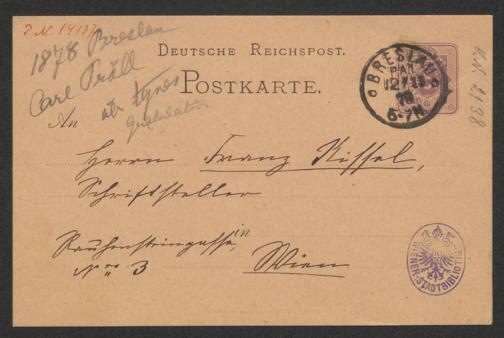 J.N. 14187
1878 Breslau
Carl Pröll
DEUTSCHE REICHSPOST.
POSTKARTE.
BRESLAU
12 7 11
78
6-7N.
H.N. 2138
An
Herrn Franz Nissel,
Schriftsteller
in
Rauhensteingasse,
No 3
Wien
WIENER-STADTBIBLIOTHEK